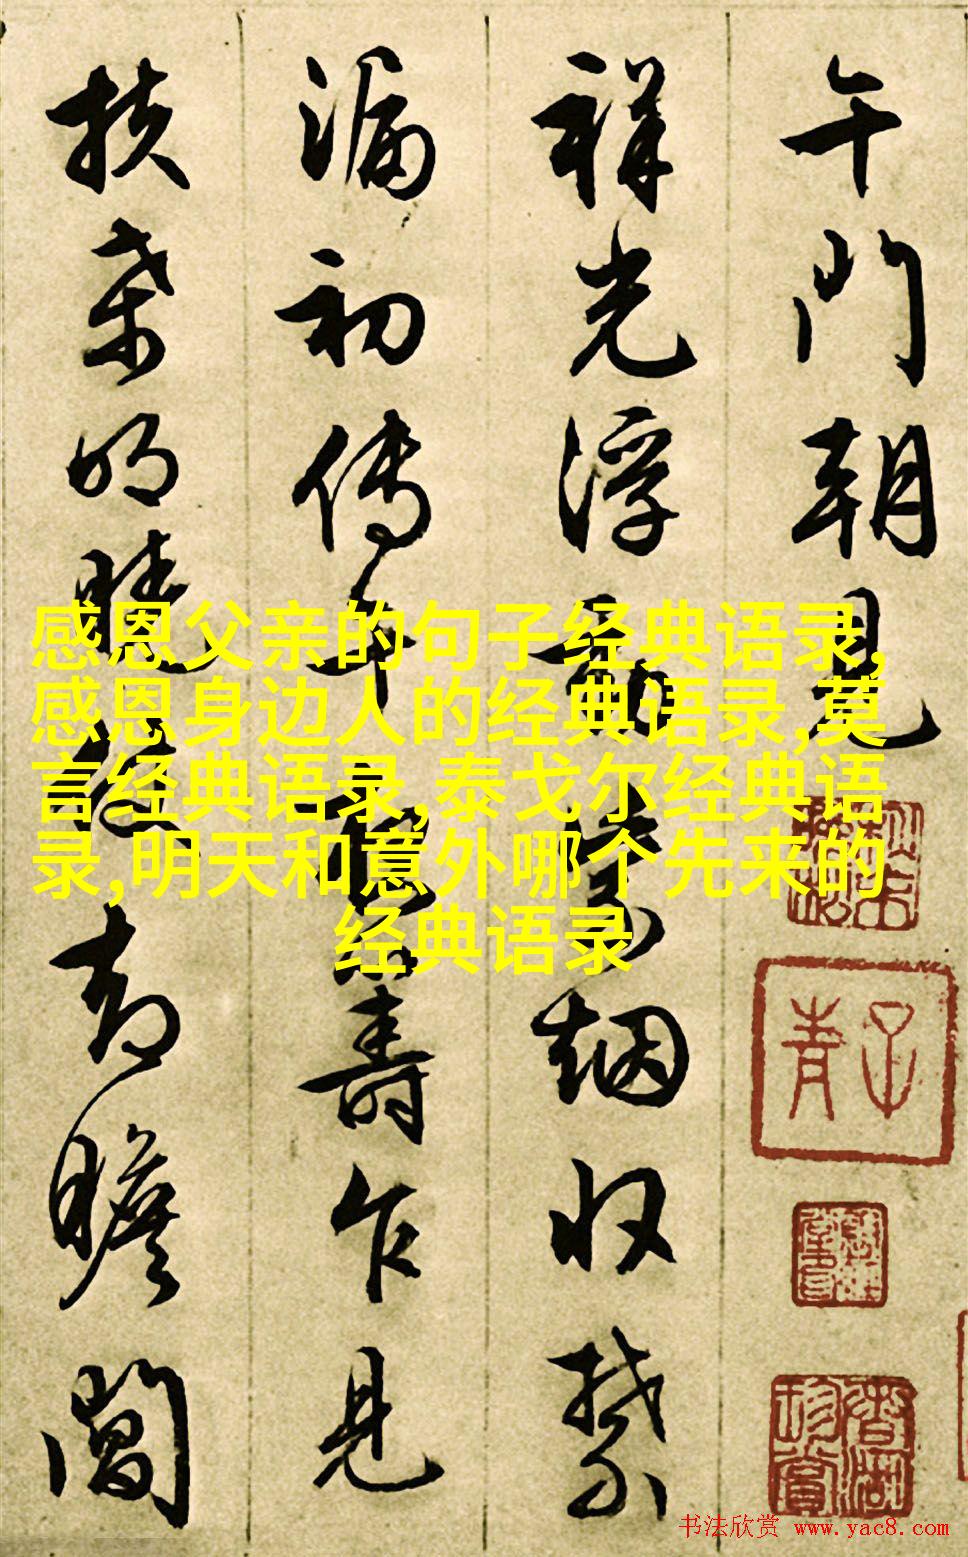 午門朝見
祥光浮動紫烟收禁
漏初传午夜籌乍見
扶桑明曉仗瞻閶
感恩父亲的句子经典语录,
感恩身边人的经典语录,莫
言经典语录,泰戈尔经典语
录,明天和意外哪个先来的
经典语录
子青
书法欣赏 www.yac8.com